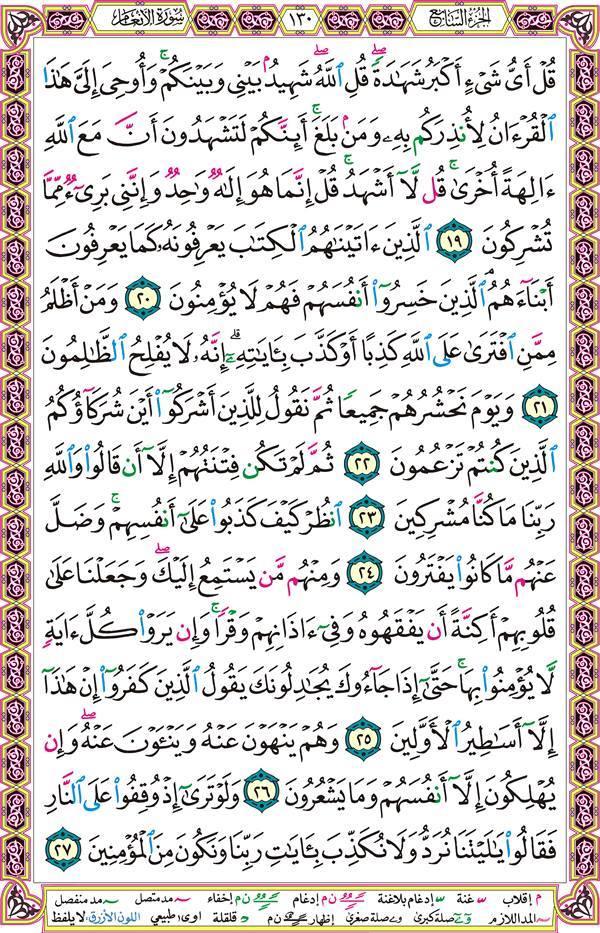 الجزء السابع ١٣٠ سورة الأنعام
قُلۡ أَيُّ شَيۡءٍ أَكۡبَرُ شَهَٰدَةٗۖ قُلِ ٱللَّهُۖ شَهِيدُۢ بَيۡنِي وَبَيۡنَكُمۡۚ وَأُوحِيَ إِلَيَّ هَٰذَا
ٱلۡقُرۡءَانُ لِأُنذِرَكُم بِهِۦ وَمَنۢ بَلَغَۚ أَئِنَّكُمۡ لَتَشۡهَدُونَ أَنَّ مَعَ ٱللَّهِ
ءَالِهَةً أُخۡرَىٰۚ قُل لَّآ أَشۡهَدُۚ قُلۡ إِنَّمَا هُوَ إِلَٰهٞ وَٰحِدٞ وَإِنَّنِي بَرِيٓءٞ مِّمَّا
تُشۡرِكُونَ ١٩ ٱلَّذِينَ ءَاتَيۡنَٰهُمُ ٱلۡكِتَٰبَ يَعۡرِفُونَهُۥ كَمَا يَعۡرِفُونَ
أَبۡنَآءَهُمُۘ ٱلَّذِينَ خَسِرُوٓاْ أَنفُسَهُمۡ فَهُمۡ لَا يُؤۡمِنُونَ ٢٠ وَمَنۡ أَظۡلَمُ
مِمَّنِ ٱفۡتَرَىٰ عَلَى ٱللَّهِ كَذِبًا أَوۡ كَذَّبَ بِـَٔايَٰتِهِۦٓۚ إِنَّهُۥ لَا يُفۡلِحُ ٱلظَّٰلِمُونَ
٢١ وَيَوۡمَ نَحۡشُرُهُمۡ جَمِيعٗا ثُمَّ نَقُولُ لِلَّذِينَ أَشۡرَكُوٓاْ أَيۡنَ شُرَكَآؤُكُمُ
ٱلَّذِينَ كُنتُمۡ تَزۡعُمُونَ ٢٢ ثُمَّ لَمۡ تَكُن فِتۡنَتُهُمۡ إِلَّآ أَن قَالُواْ وَٱللَّهِ
رَبِّنَا مَا كُنَّا مُشۡرِكِينَ ٢٣ ٱنظُرۡ كَيۡفَ كَذَبُواْ عَلَىٰٓ أَنفُسِهِمۡۚ وَضَلَّ
عَنۡهُم مَّا كَانُواْ يَفۡتَرُونَ ٢٤ وَمِنۡهُم مَّن يَسۡتَمِعُ إِلَيۡكَۖ وَجَعَلۡنَا عَلَىٰ
قُلُوبِهِمۡ أَكِنَّةً أَن يَفۡقَهُوهُ وَفِيٓ ءَاذَانِهِمۡ وَقۡرٗاۚ وَإِن يَرَوۡاْ كُلَّ ءَايَةٖ
لَّا يُؤۡمِنُواْ بِهَاۖ حَتَّىٰٓ إِذَا جَآءُوكَ يُجَٰدِلُونَكَ يَقُولُ ٱلَّذِينَ كَفَرُوٓاْ إِنۡ هَٰذَآ
إِلَّآ أَسَٰطِيرُ ٱلۡأَوَّلِينَ ٢٥ وَهُمۡ يَنۡهَوۡنَ عَنۡهُ وَيَنۡـَٔوۡنَ عَنۡهُۖ وَإِن
يُهۡلِكُونَ إِلَّآ أَنفُسَهُمۡ وَمَا يَشۡعُرُونَ ٢٦ وَلَوۡ تَرَىٰٓ إِذۡ وُقِفُواْ عَلَى ٱلنَّارِ
فَقَالُواْ يَٰلَيۡتَنَا نُرَدُّ وَلَا نُكَذِّبَ بِـَٔايَٰتِ رَبِّنَا وَنَكُونَ مِنَ ٱلۡمُؤۡمِنِينَ ٢٧
م إقلاب غنة إدغام بلاغنة ن م إدغام ن م إخفاء مد متصل مد منفصل
المد اللازم صلة كبرى صلة صغرى إظهار ن م قلقلة اوى طبيعي اللون الأزرق لا يلفظ